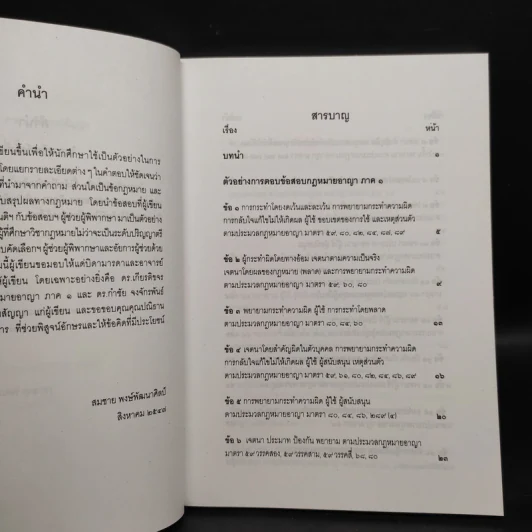 คำนำ
เขียนขึ้นเพื่อให้นักศึกษาใช้เป็นตัวอย่างในการ
โดยแยกรายละเอียดต่าง ๆ ในคำตอบให้ชัดเจนว่า
ที่นำมาจากคำถาม ส่วนใดเป็นข้อกฎหมาย และ
สรุปผลทางกฎหมาย โดยนำข้อสอบที่ผู้เขียน
กับข้อสอบฯ ผู้ช่วยผู้พิพากษา มาเป็นตัวอย่าง
ผู้ที่ศึกษาวิชากฎหมายไม่ว่าจะเป็นระดับปริญญาตรี
คัดเลือกฯ ผู้ช่วยผู้พิพากษาและอัยการผู้ช่วยด้วย
นี้ผู้เขียนขอมอบให้แด่บิดามารดาและอาจารย์
ผู้เขียน โดยเฉพาะอย่างยิ่งคือ ดร.เกียรติขจร
อาญา ภาค ๑ และ ดร.กำชัย จงจักรพันธ์
สัญญา แก่ผู้เขียน และขอขอบคุณคุณปณิธาน
การ ที่ช่วยพิสูจน์อักษรและให้ข้อคิดที่มีประโยชน์
สมชาย พงษ์พัฒนาศิลป์
สิงหาคม ๒๕๔๗
สารบาญ
เรื่อง หน้า
บทนำ ๑
ตัวอย่างการตอบข้อสอบกฎหมายอาญา ภาค ๑
ข้อ ๑ การกระทำโดยงดเว้นและละเว้น การพยายามกระทำความผิด
การกลับใจแก้ไขไม่ให้เกิดผล ผู้ใช้ ขอบเขตของการใช้ และเหตุส่วนตัว
ตามประมวลกฎหมายอาญา มาตรา ๕๙, ๘๐, ๘๒, ๘๔, ๘๗, ๘๙ ๕
ข้อ ๒ ผู้กระทำผิดโดยทางอ้อม เจตนาตามความเป็นจริง
เจตนาโดยผลของกฎหมาย (พลาด) และการพยายามกระทำความผิด
ตามประมวลกฎหมายอาญา มาตรา ๕๙, ๖๐, ๘๐ ๙
ข้อ ๓ พยายามกระทำความผิด ผู้ใช้ การกระทำโดยพลาด
ตามประมวลกฎหมายอาญา มาตรา ๘๐, ๘๔, ๖๐ ๑๓
ข้อ ๔ เจตนาโดยสำคัญผิดในตัวบุคคล การพยายามกระทำความผิด
การกลับใจแก้ไขไม่ให้เกิดผล ผู้ใช้ ผู้สนับสนุน เหตุส่วนตัว
ตามประมวลกฎหมายอาญา มาตรา ๕๙, ๖๑, ๘๐, ๘๒, ๘๔, ๘๖, ๘๙ ๑๖
ข้อ ๕ การพยายามกระทำความผิด ผู้ใช้ ผู้สนับสนุน
ตามประมวลกฎหมายอาญา มาตรา ๘๐, ๘๔, ๘๖, ๒๘๙ (๔) ๒๐
ข้อ ๖ เจตนา ประมาท ป้องกัน พยายาม ตามประมวลกฎหมายอาญา
มาตรา ๕๙ วรรคสอง, ๕๙ วรรคสาม, ๕๙ วรรคสี่, ๖๘, ๘๐ ๒๓